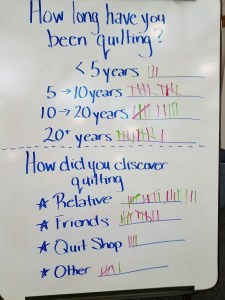 How long have you
been quilting?
< 5 years
5 → 10 years
10 → 20 years
20+ years
How did you discover
quilting
★ Relative
★ Friends
★ Quit Shop
★ Other